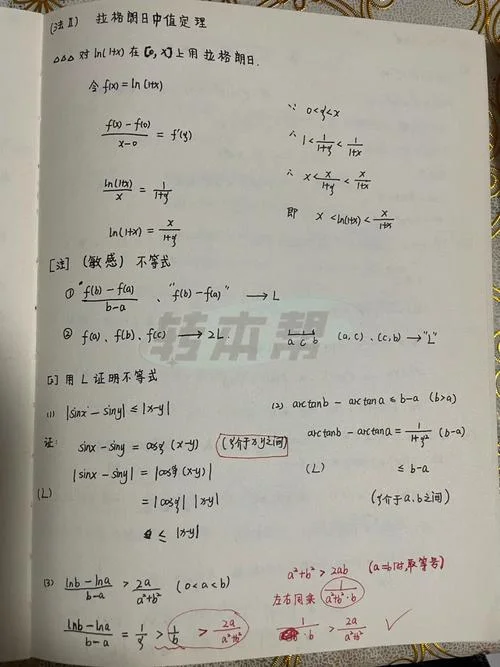 (法Ⅱ) 拉格朗日中值定理
△△△ 对 ln(1+x) 在 [0, x] 上用拉格朗日.
令 f(x) = ln(1+x)
\frac{f(x) - f(0)}{x-0} = f'(ξ)
\frac{ln(1+x)}{x} = \frac{1}{1+ξ}
ln(1+x) = \frac{x}{1+ξ}
∵ 0<ξ<x
∴ 1 < \frac{1}{1+ξ} < \frac{1}{1+x}
∴ x < \frac{x}{1+ξ} < \frac{x}{1+x}
即 x < ln(1+x) < \frac{x}{1+x}
[注] (敏感) 不等式
① "\frac{f(b) - f(a)}{b-a}、"f(b) - f(a)" → L
② f(a)、f(b)、f(c) → 2L. a c b (a, c)、(c, b) → "L"
转本帮
用 L 证明不等式
(1) |sinx - siny| ≤ |x-y|
证: sinx - siny = cosξ (x-y) (ξ介于x.y之间)
|sinx - siny| = |cosξ (x-y)|
(L) = |cosξ| |x-y|
≤ |x-y|
(2) arctanb - arctana ≤ b-a (b>a)
arctanb - arctana = \frac{1}{1+ξ²} (b-a)
(L) ≤ b-a
(ξ介于a.b之间)
(3) \frac{lnb - lna}{b-a} > \frac{2a}{a²+b²} (0<a<b)
\frac{lnb - lna}{b-a} = \frac{1}{ξ} > \frac{1}{b} > \frac{2a}{a²+b²}
a²+b² > 2ab (a=b时取等号)
左右同乘 \frac{1}{a²+b²·b}
\frac{1}{b} > \frac{2a}{a²+b²} ✓